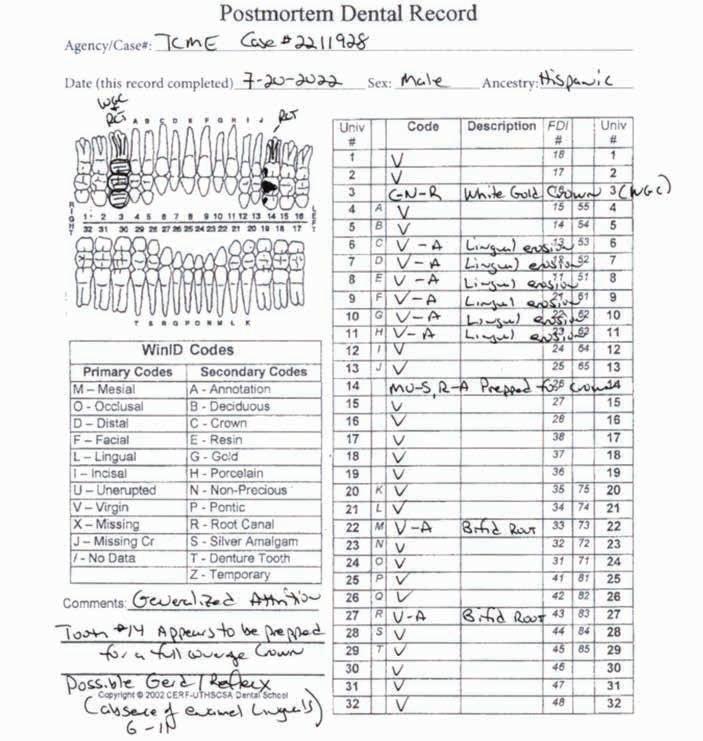 Postmortem Dental Record
Agency/Case#: TCME Case # 2211928
Date (this record completed) 7-20-2022 Sex: Male Ancestry: Hispanic
WGC
RCT RCT
A B C D E F G H I J
RIGHT LEFT
1 2 3 4 5 6 7 8 9 10 11 12 13 14 15 16
32 31 30 29 28 27 26 25 24 23 22 21 20 19 18 17
T S R Q P O N M L K
WinID Codes
Primary Codes Secondary Codes
M – Mesial A - Annotation
O – Occlusal B - Deciduous
D – Distal C - Crown
F – Facial E - Resin
L – Lingual G - Gold
I – Incisal H - Porcelain
U – Unerupted N - Non-Precious
V – Virgin P - Pontic
X – Missing R - Root Canal
J – Missing Cr S - Silver Amalgam
/ - No Data T - Denture Tooth
Z - Temporary
Comments: Generalized Attrition
Tooth #14 Appears to be prepped
for a full coverage Crown
Possible Gerd / Reflux
Copyright © 2002 CERF-UTHSCSA Dental School
(absence of enamel linguals)
6 - 11
Univ # Code Description FDI # Univ #
1 V 18 1
2 V 17 2
3 C-N-R White Gold Crown 3 (WGC)
4 A V 15 55 4
5 B V 14 54 5
6 C V-A Lingual erosion 13 53 6
7 D V-A Lingual erosion 52 7
8 E V-A Lingual erosion 11 51 8
9 F V-A Lingual erosion 21 61 9
10 G V-A Lingual erosion 22 62 10
11 H V-A Lingual erosion 23 63 11
12 I V 24 64 12
13 J V 25 65 13
14 MO-S, R-A Prepped for Crown 14
15 V 27 15
16 V 28 16
17 V 38 17
18 V 37 18
19 V 36 19
20 K V 35 75 20
21 L V 34 74 21
22 M V-A Bifid Root 33 73 22
23 N V 32 72 23
24 O V 31 71 24
25 P V 41 81 25
26 Q V 42 82 26
27 R V-A Bifid Root 43 83 27
28 S V 44 84 28
29 T V 45 85 29
30 V 46 30
31 V 47 31
32 V 48 32